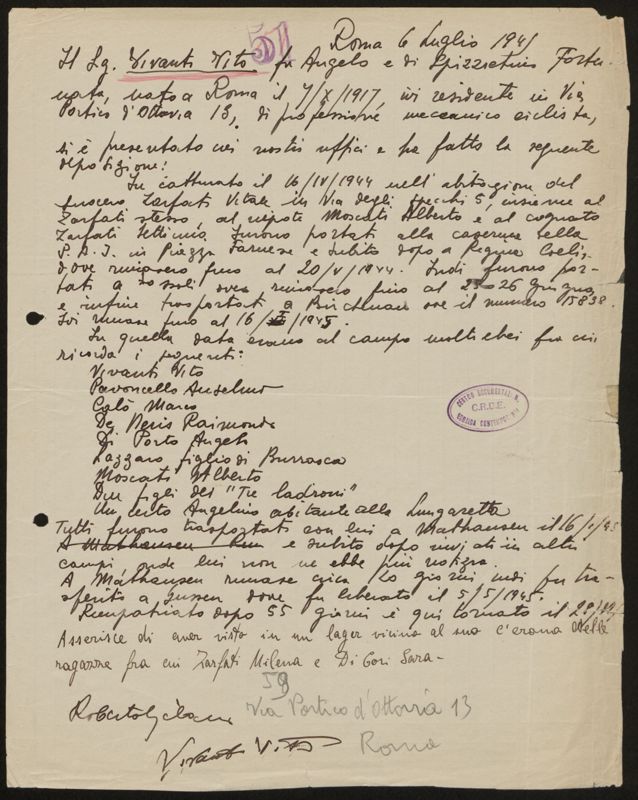 Roma 6 Luglio 1945
Il Sg. Vivanti Vito fu Angelo e di Spizzichino Fortu-
nata, nato a Roma il 7/X/1917, ivi residente in Via
Portico d'Ottavia 13, di professione meccanico ciclista,
si è presentato nei nostri uffici e ha fatto la seguente
deposizione:
Fu catturato il 16/IV/1944 nell'abitazione del
suocero Zarfati Vitale in Via degli Specchi 5, insieme al
Zarfati stesso, al nipote Moscati Alberto e al cognato
Zarfati Settimio. Furono portati alla caserma della
P.A.I. in Piazza Farnese e subito dopo a Regina Coeli,
dove rimasero fino al 20/V/1944. Indi furono por-
tati a Fossoli ove rimasero fino al 25-26 giugno,
e infine trasportati a Birchenau ove il numero 15838.
Ivi rimase fino al 16/I/1945.
In quella data erano al campo molti ebrei fra cui
ricorda i seguenti:
Vivanti Vito
Pavoncello Anselmo
Calò Marco
De Neris Raimondo
Di Porto Angelo
Lazzaro figlio di Burrasca
Moscati Alberto
Due figli dei "Tre ladroni"
Un certo Angelino abitante alla Lungaretta
Tutti furono trasportati con lui a Mathausen il 16/1/45
A Mathausen e subito dopo inviati in altri
campi, onde lui non ne ebbe più notizia.
A Mathausen rimase circa 20 giorni indi fu tra-
sferito a Gussen dove fu liberato il 5/5/1945.
Rimpatriato dopo 55 giorni è qui tornato il 29/
Asserisce di aver visto in un lager vicino al suo c'erano delle
ragazze fra cui Zarfati Milena e Di Cori Sara-
Via Portico d'Ottavia 13
Vivanti Vito
Roma
C.R.D.E.